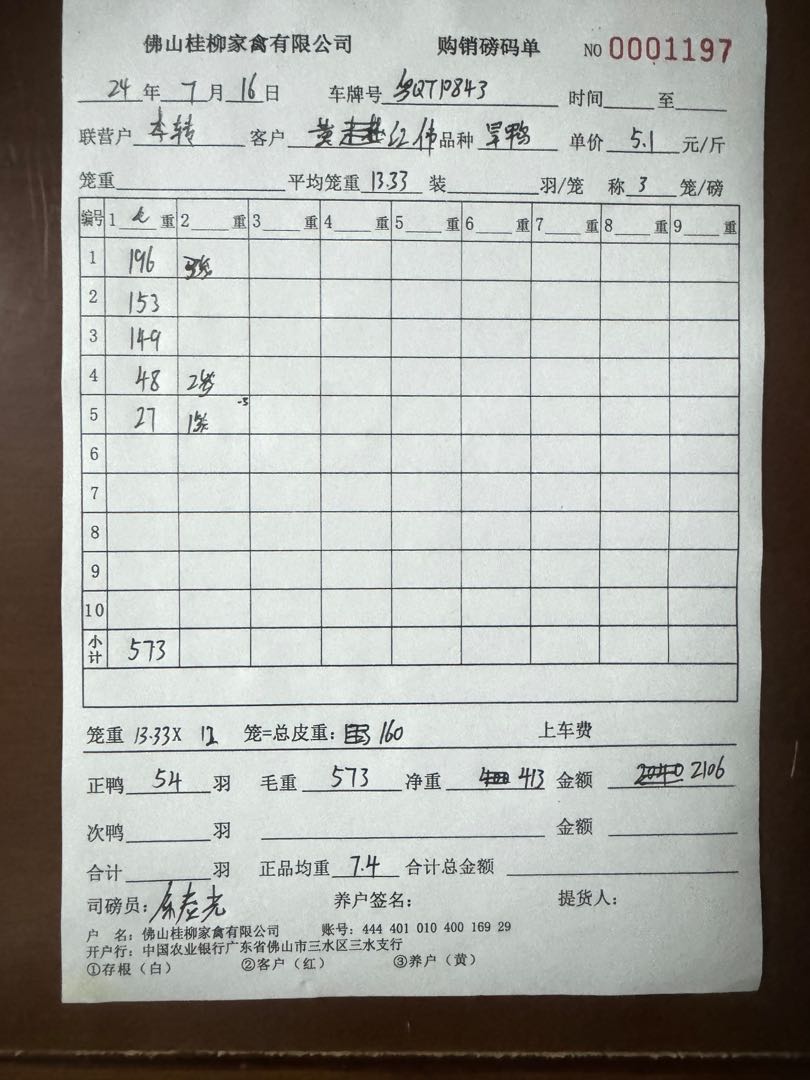 佛山桂柳家禽有限公司 购销磅码单 NO 0001197
24 年 7 月 16 日 车牌号 粤QTP843 时间 至
联营户 李转 客户 黄 红伟 品种 旱鸭 单价 5.1 元/斤
笼重 平均笼重 13.33 装 羽/笼 称 3 笼/磅
编号 1 重 2 重 3 重 4 重 5 重 6 重 7 重 8 重 9 重
1 196
2 153
3 149
4 48 2笼
5 27 1笼 -3
6
7
8
9
10
小计 573
笼重 13.33X 12 笼=总皮重: 160 上车费
正鸭 54 羽 毛重 573 净重 413 金额 2106
次鸭 羽 金额
合计 羽 正品均重 7.4 合计总金额
司磅员: 养户签名: 提货人:
户 名: 佛山桂柳家禽有限公司 账号: 444 401 010 400 169 29
开户行: 中国农业银行广东省佛山市三水区三水支行
①存根(白) ②客户(红) ③养户(黄)